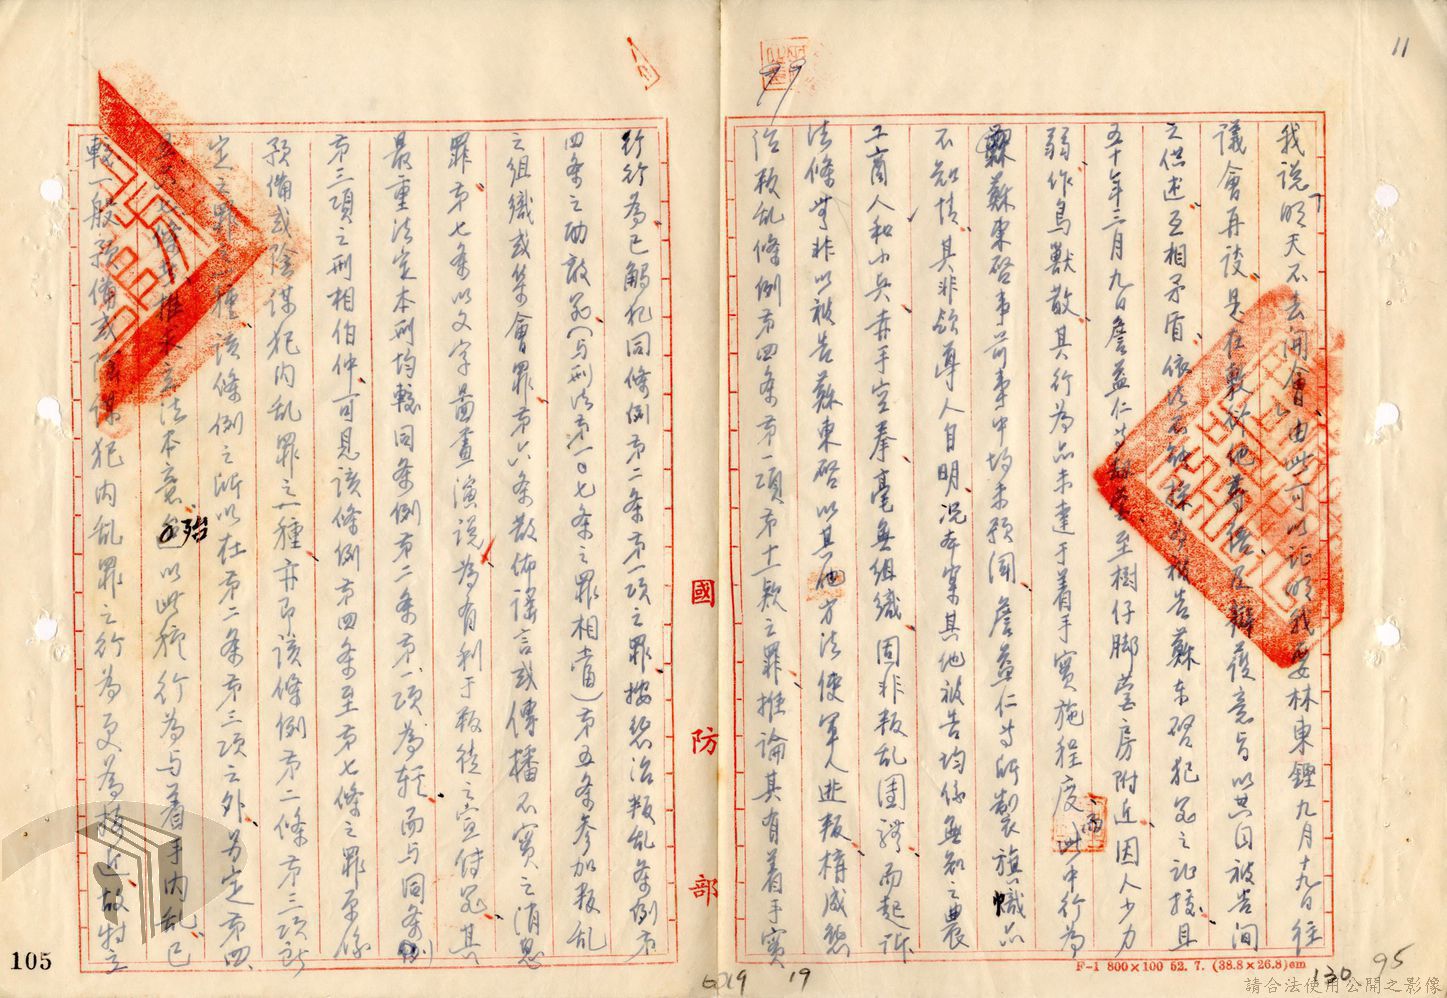 11
我說明天不去開會」由此可以証明我要林東鏗九月十九日往
議會再談是在敷衍他等語及辯護意旨以共同被告間
之供述互相矛盾依法不能採為被告蘇東啓犯罪之証據且
五十年三月九日詹益仁等 至樹仔脚營房附近因人少力
弱作鳥獸散其行為亦未達于着手實施程度而此中行為
蘇東啓事前事中均未預聞詹益仁等所製旗幟亦
不知情其非欲導人自明況本案其他被告均係無知之農
工商人和小兵赤手空拳毫無組織固非叛乱團體而起訴
法條無非以被告蘇東啓以其他方法使軍人逃叛構成懲
治叛乱條例第四条第一項第十一款之罪推論其有着手實
行行為已觸犯同條例第二条第一項之罪按懲治叛乱条例第
四条之助敵罪(与刑法第一0七条之罪相當)第五条参加叛乱
之組織或集會罪第六条散佈謠言或傳播不實之消息
罪第七条以文字圖畫演說為有利于叛徒之宣傳罪其
最重法定本刑均較同条例第二条第一項為輕而与同条例
第三項之刑相伯仲可見該條例第四条至第七條之罪原係
預備或陰謀犯內乱罪之一種亦即該條例第二條第三項所
定之罪之一種該條例之所以在第二条第三項之外另定第四
条至 條 推 立法本意殆以此種行為与着手內乱已
較一般預備或陰謀犯內乱罪之行為更為接近故特立
國防部
105
F-1 800×100 52. 7. (38.8×26.8)cm
19
130
95
請合法使用公開之影像